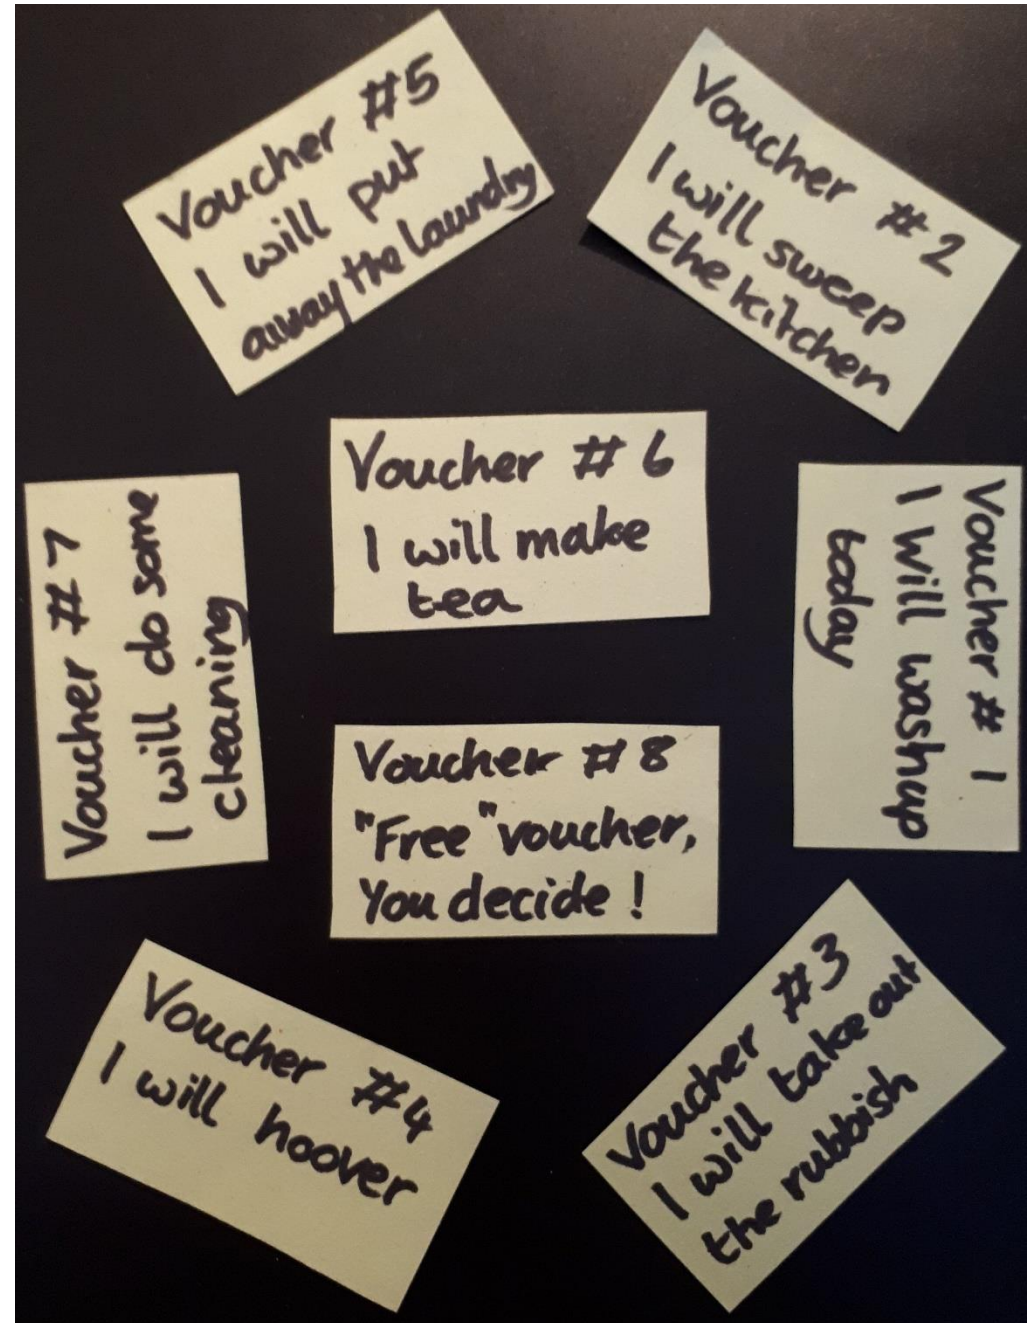 Voucher #5
I will put
away the laundry
Voucher #2
I will sweep
the kitchen
Voucher #6
I will make
tea
Voucher #7
I will do some
cleaning
Voucher # 1
I will washup
today
Voucher #8
"Free" voucher,
You decide!
Voucher #4
I will hoover
Voucher #3
I will take out
the rubbish